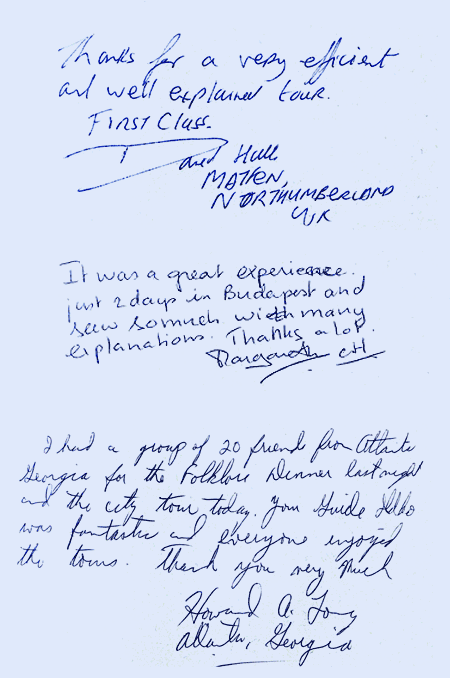 Thanks for a very efficient
and well explained tour.
First Class.
David Hall
MATFEN,
NORTHUMBERLAND
UK
It was a great experience.
just 2 days in Budapest and
saw so much with many
explanations. Thanks a lot.
Margareth CH
I had a group of 20 friend from Atlanta
Georgia for the Folklore Dinner last night
and the city tour today. Your Guide Ildiko
was fantastic and everyone enjoyed
the tours. Thank you very much
Howard A. Long
Atlanta, Georgia